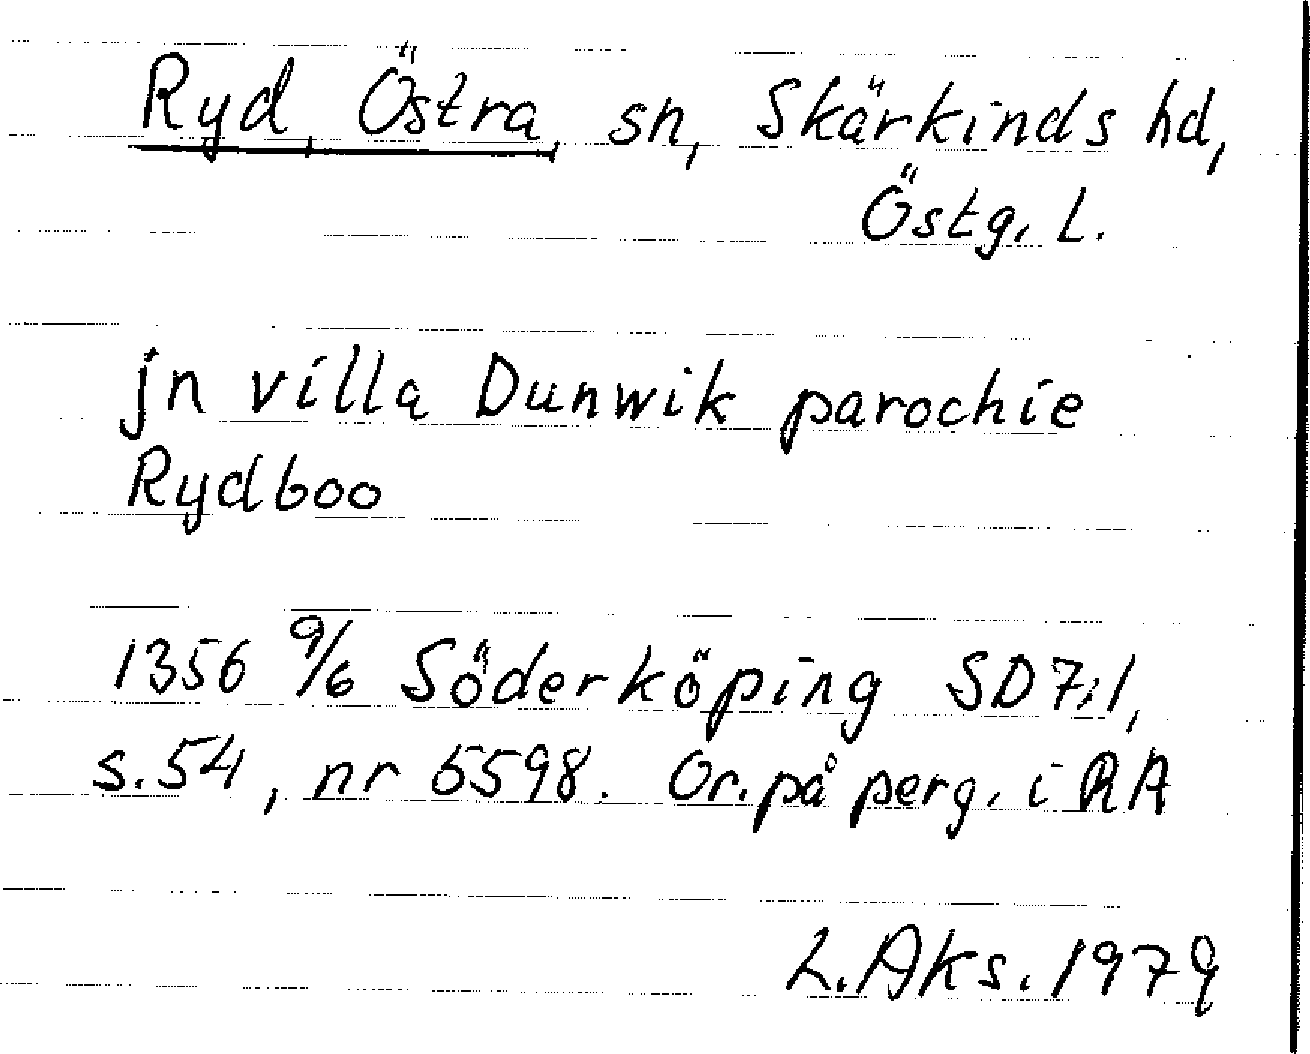 Ryd, Östra, sn, Skärkinds hd,
Östg. L.
jn villa Dunwik parochie
Rydboo
1356 9/6 Söderköping SD7:1,
s.54, nr 5598. Or. på perg. i RA
L.Aks. 1979